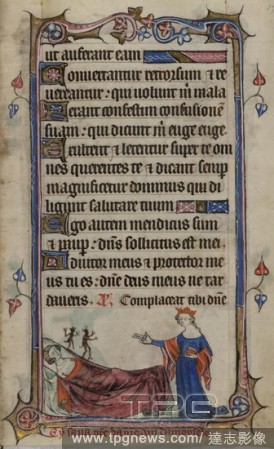 ut auferant eam
Convertantur retrorsum et re
vereantur: qui volunt m̄ mala
Ferant confestim confusionē
suam: qui dicunt m̄ euge euge
Exultent et letentur super te om
nes querentes te et dicant semp
magnificetur dominus qui di
ligunt salutare tuum
Ego autem mendicus sum
et paup: dn̄s sollicitus est mei
Adiutor meus et protector me
us tu es: dn̄e deus meus ne tar
daveris. A. Complaceat tibi dn̄e
TPG
www.tpgnews.com/達志影像